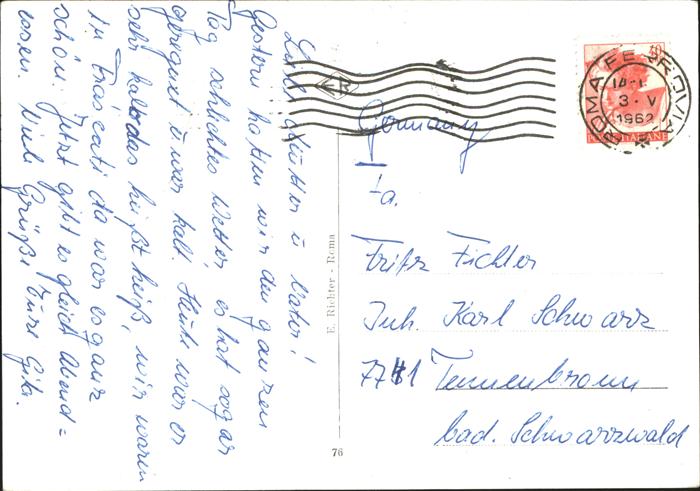 Liebe Mutter u Vater!
Gestern hatten wir den ganzen
Tag schlechtes Wetter, es hat sogar
geregnet u war kalt. Heute war es
sehr heiß, wir waren
in Frascati da war es ganz
schön. Jetzt gibt es gleich Abend=
essen. Viele Grüße Eure Gita.
E. Richter - Roma
76
ROMA FERROVIA
3 · V
1962
POSTE ITALIANE
Germany
Fa.
Fritz Fichter
Inh. Karl Schwarz
7741 Tennenbronn
bad. Schwarzwald